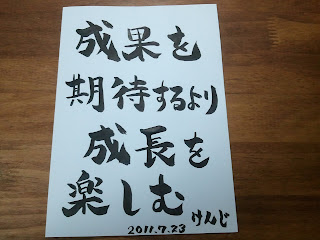 成果を
期待するより
成長を
楽しむ
けんじ
2011.7.23